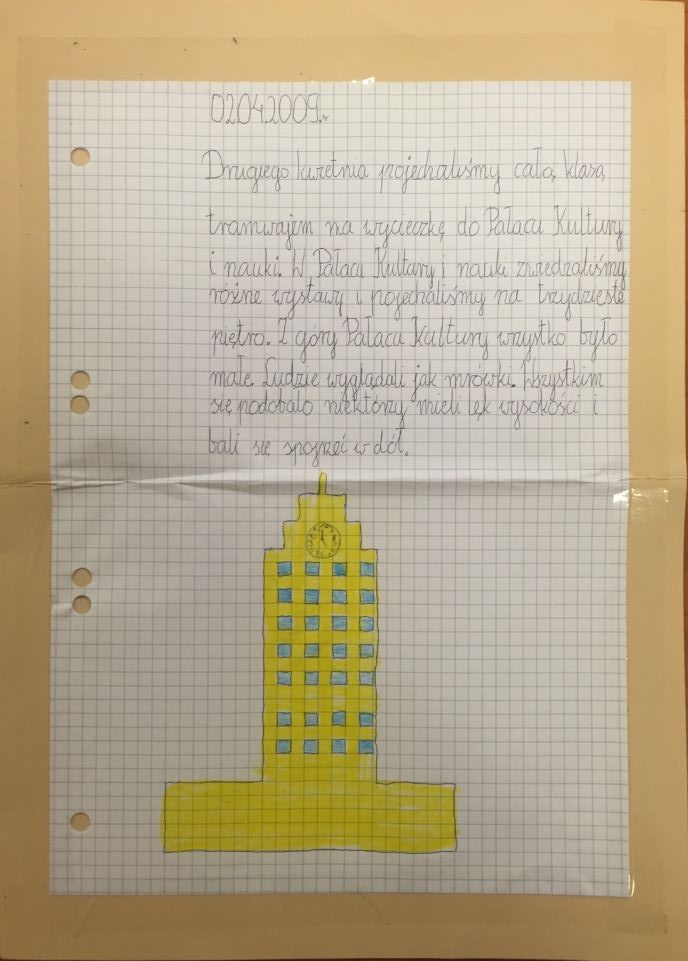 02.04.2009.r
Drugiego kwietnia pojechaliśmy całą klasą
tramwajem na wycieczkę do Pałacu Kultury
i nauki. W Pałacu Kultury i nauki zwiedzaliśmy
różne wystawy i pojechaliśmy na trzydzieste
piętro. Z góry Pałacu Kultury wrzystko było
małe. Ludzie wyglądali jak mrówki. Wszystkim
się podobało niektórzy mieli lęk wysokości i
bali się spojrzeć w dół.